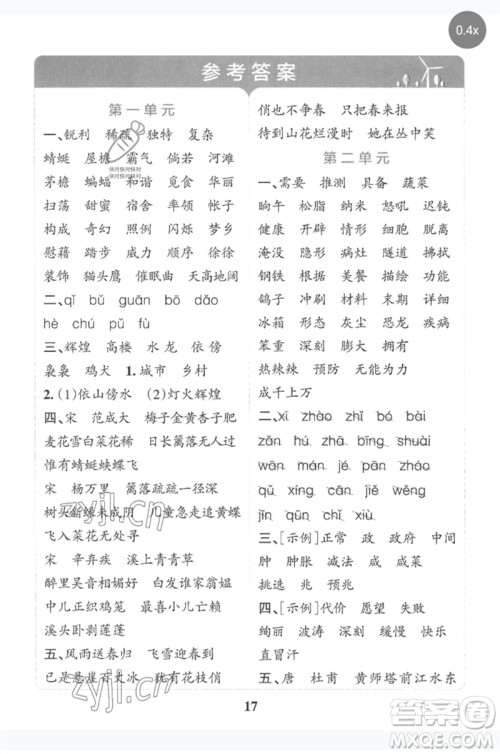 0.4x
参考答案
第一单元
一、锐利 稀疏 独特 复杂
蜻蜓 屋檐 霸气 倘若 河滩
茅檐 蝙蝠 和谐 觅食 华丽
扫荡 甜蜜 率领 守护 和平
构成 奇幻 照例 闪烁 梦乡
慰藉 踏步 威力 巧妙 徐徐
装饰 猫头鹰 催眠曲 天高地阔
二、qǐ bǔ guān bō dǎo
hè chú pǔ fù
三、辉煌 高楼 水龙 依傍
袅袅 鸡犬 1.城市 乡村
2.(1)依山傍水 (2)灯火辉煌
四、宋 范成大 梅子金黄杏子肥
麦花雪白菜花稀 日长篱落无人过
惟有蜻蜓蛱蝶飞
宋 杨万里 篱落疏疏一径深
树头新绿未成阴 儿童急走追黄蝶
飞入菜花无处寻
宋 辛弃疾 溪上青青草
醉里吴音相媚好 白发谁家翁媪
中儿正织鸡笼 最喜小儿亡赖
溪头卧剥莲蓬
五、风雨送春归 飞雪迎春到
已是悬崖百丈冰 犹有花枝俏
俏也不争春 只把春来报
待到山花烂漫时 她在丛中笑
第二单元
一、需要 推测 具备 蔬菜
晌午 松脂 纳米 怒吼 迟钝
健康 原理 防御 即使
淹没 隐蔽 病灶 隧道 拂拭
钢铁 根据 美餐 描绘 功能
鸽子 冲刷 材料 末期 详细
冰箱 形态
笨重 深长 巨大 膨胀 并用
热辣辣 预防 无能为力
成千上万
二、xī zhào zhī bó bài
zān hǎn zhā bīng shuāi
yàn huì pàn zhé zhào
qū xíng cān jiē mò
jīn qǔ chàn qíng
三、[示例]正常 政 政府 中间
肿 肿胀 减法 咸 咸菜
挑选 兆 预兆
四、[示例]代价 愿望 失败
绚丽 波涛 深刻 缓慢 快乐
崩塌
五、唐 杜甫 黄师塔前江水东
17
zyjl.cn
zyjl.cn
快对快对快对
快对快对快对
答案圈
MXQE.COM